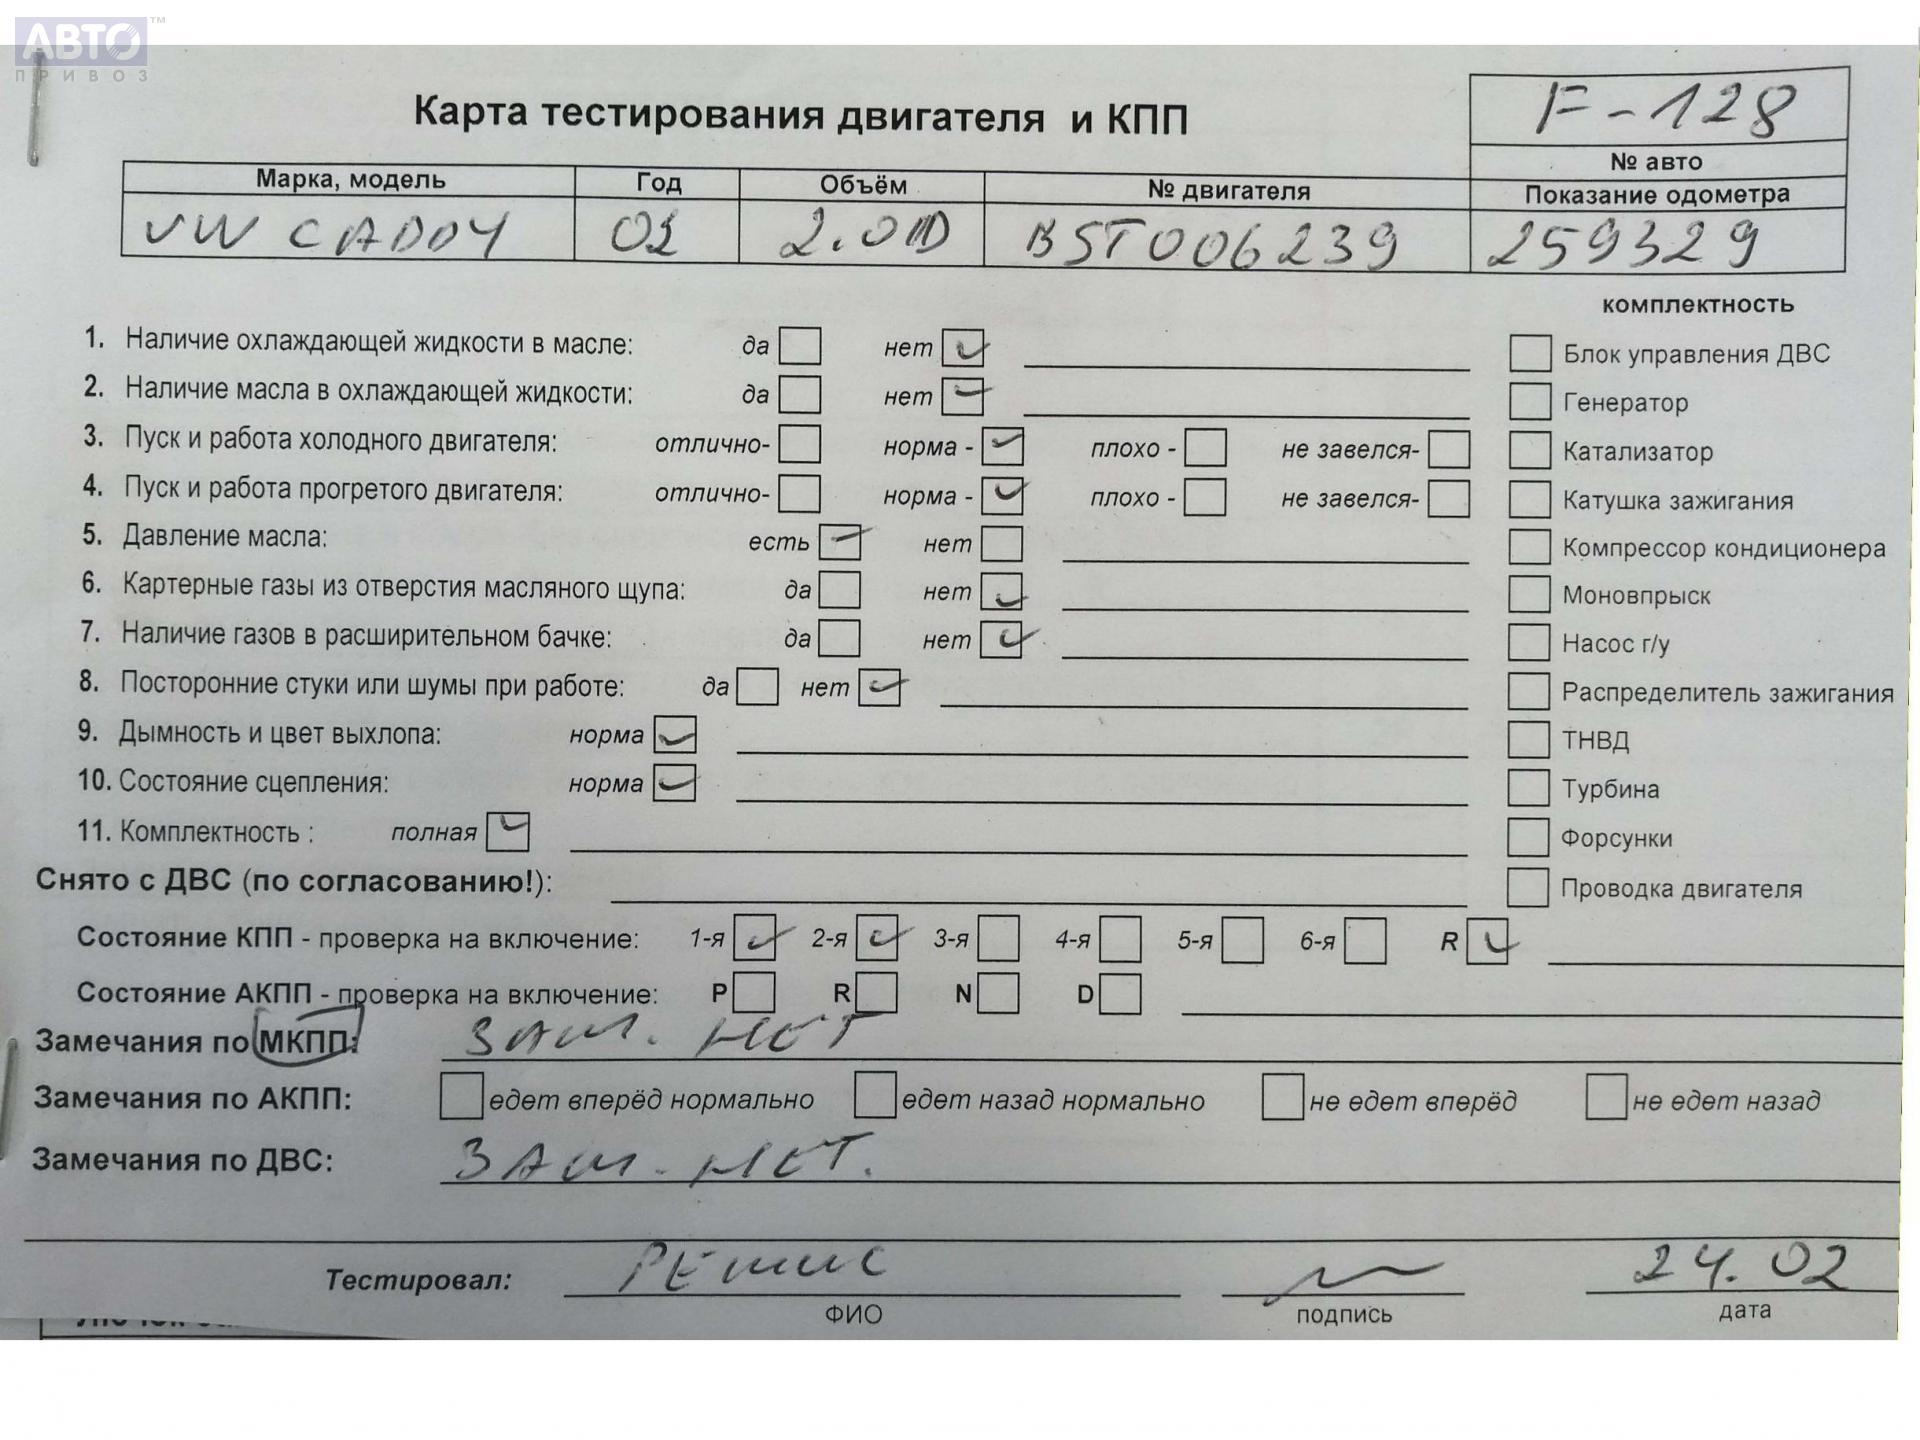 АВТО™
ПРИВОЗ
Карта тестирования двигателя и КПП
F-128
№ авто
Марка, модель Год Объём № двигателя Показание одометра
VW CADDY 2.0 BST006239 259329
комплектность
1. Наличие охлаждающей жидкости в масле: да нет Блок управления ДВС
2. Наличие масла в охлаждающей жидкости: да нет Генератор
3. Пуск и работа холодного двигателя: отлично- норма - плохо - не завелся- Катализатор
4. Пуск и работа прогретого двигателя: отлично- норма - плохо - не завелся- Катушка зажигания
5. Давление масла: есть нет Компрессор кондиционера
6. Картерные газы из отверстия масляного щупа: да нет Моновпрыск
7. Наличие газов в расширительном бачке: да нет Насос г/у
8. Посторонние стуки или шумы при работе: да нет Распределитель зажигания
9. Дымность и цвет выхлопа: норма ТНВД
10. Состояние сцепления: норма Турбина
11. Комплектность : полная Форсунки
Снято с ДВС (по согласованию!): Проводка двигателя
Состояние КПП - проверка на включение: 1-я 2-я 3-я 4-я 5-я 6-я R
Состояние АКПП - проверка на включение: P R N D
Замечания по МКПП: ЗАМ. НЕТ
Замечания по АКПП: едет вперёд нормально едет назад нормально не едет вперёд не едет назад
Замечания по ДВС: ЗАМ. НЕТ.
Тестировал: 24.02
ФИО подпись дата